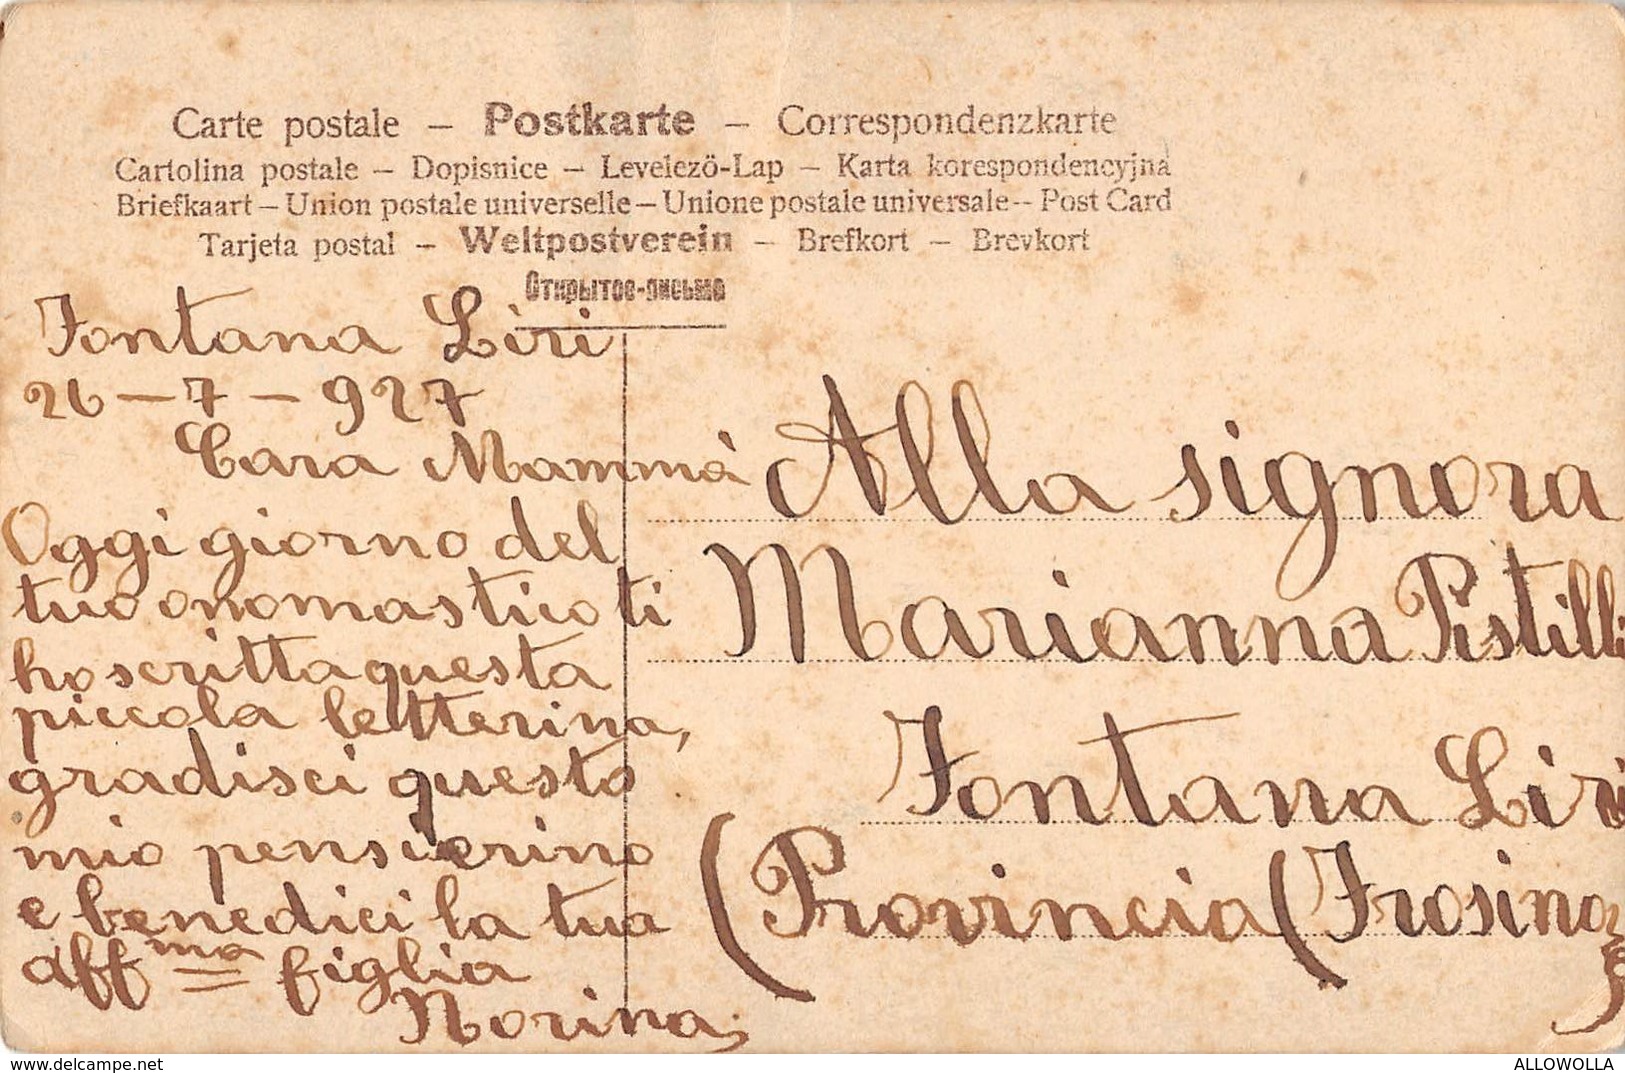 Carte postale – Postkarte – Correspondenzkarte
Cartolina postale – Dopisnice – Levelező-Lap – Karta korespondencyjna
Briefkaart – Union postale universelle – Unione postale universale – Post Card
Tarjeta postal – Weltpostverein – Brefkort – Brevkort
Открытое-письмо
Fontana Liri
26 – 7 – 927
Cara Mammà
Oggi giorno del
tuo onomastico ti
ho scritta questa
piccola letterina,
gradisci questo
mio pensierino
e benedici la tua
aff.ma figlia
Norina
Alla signora
Marianna Pistilli
Fontana Liri
(Provincia (Frosinone
delcampe.net
ALLOWOLLA